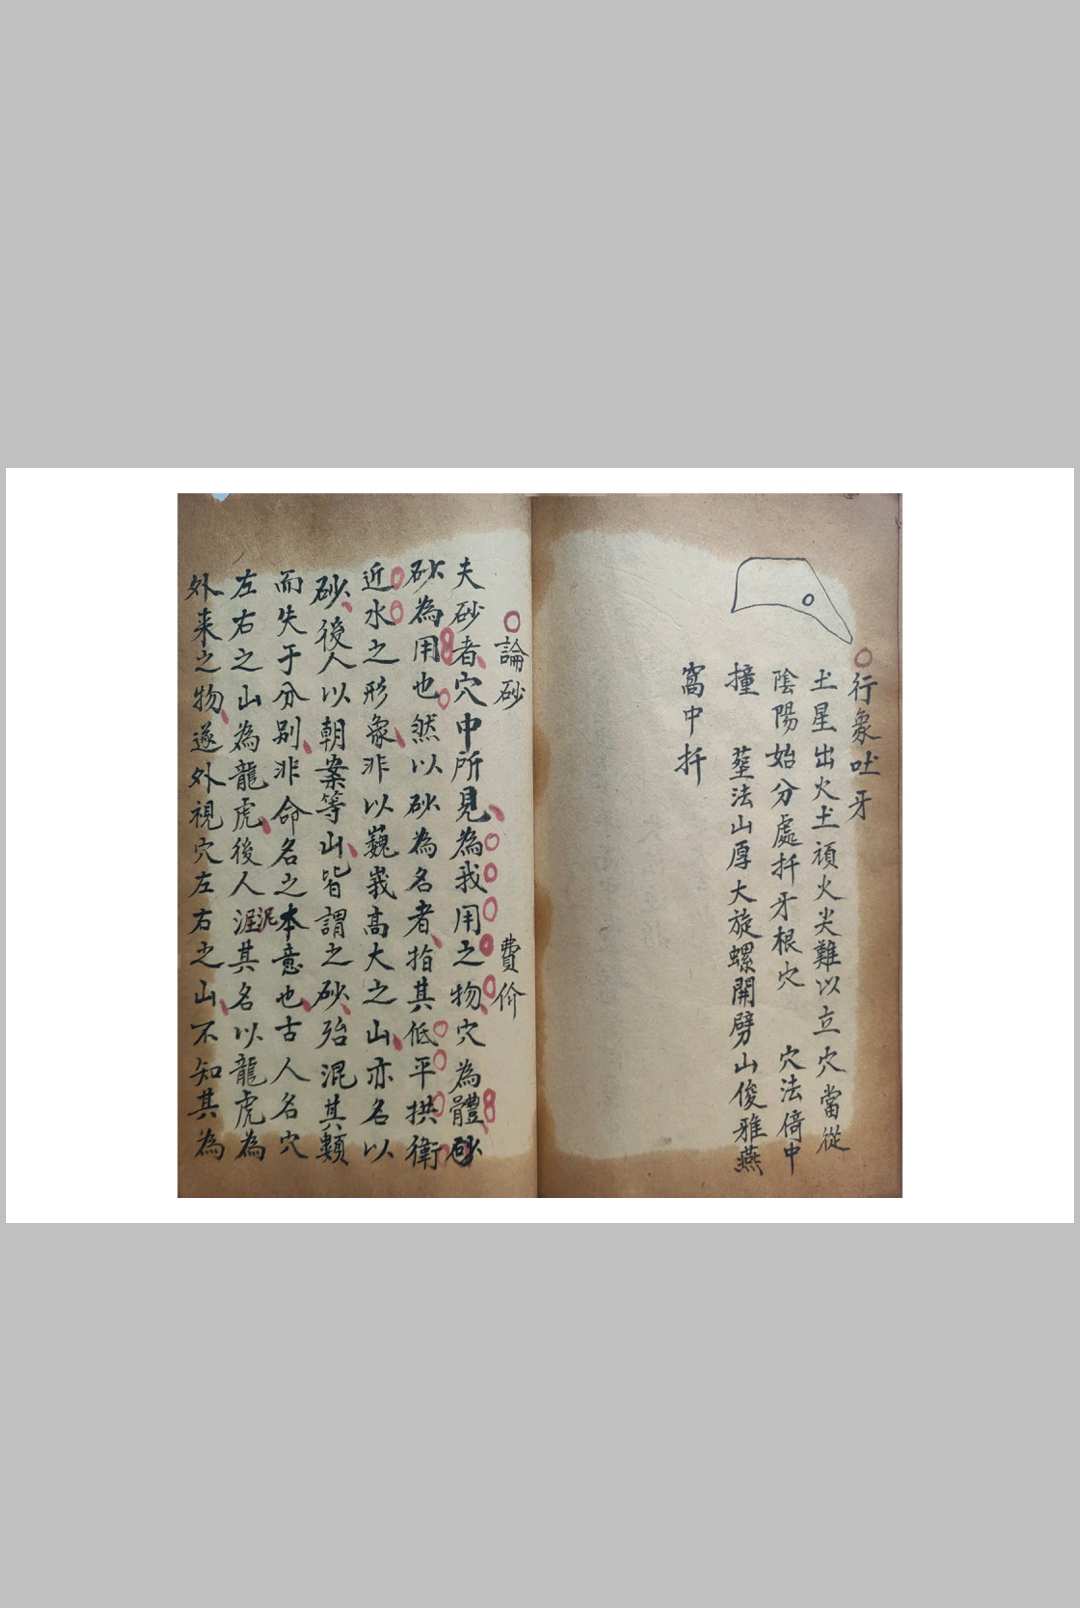 行象吐牙
土星出火土頑火尖難以立穴當從
陰陽始分處扦牙根穴 穴法倚中
撞 塟法山厚大旋螺開劈山俊雅燕
窩中扦
論砂 費价
夫砂者穴中所見為我用之物穴為體砂
砂為用也然以砂為名者指其低平拱衛
近水之形象非以巍峩高大之山亦名以
砂後人以朝案等山皆謂之砂殆混其類
而失于分別非命名之本意也古人名穴
左右之山為龍虎後人泥其名以龍虎為
外來之物遂外視穴左右之山不知其為